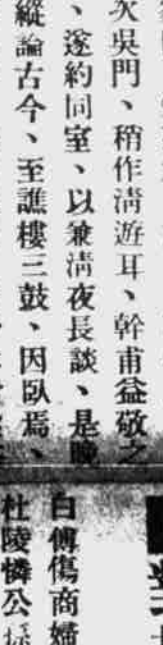 次吳門、稍作淸遊耳、幹甫益敬之
、遂約同室、以兼淸夜長談、是晚
縱論古今、至譙樓三鼓、因臥焉、
白傅傷商婦
杜陵憐公孫